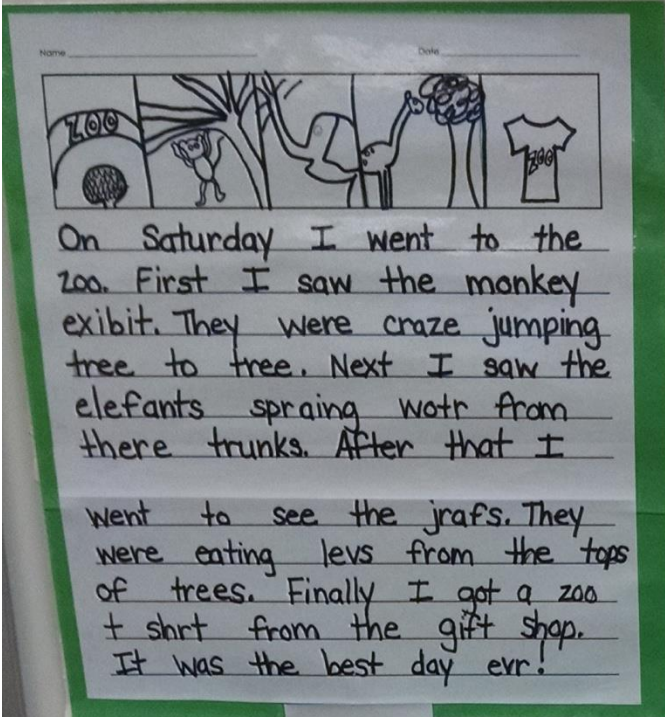 Name
Date
ZOO
ZOO
On Saturday I went to the
zoo. First I saw the monkey
exibit. They were craze jumping
tree to tree. Next I saw the
elefants spraing wotr from
there trunks. After that I
went to see the jrafs. They
were eating levs from the tops
of trees. Finally I got a zoo
t shrt from the gift shop.
It was the best day evr!